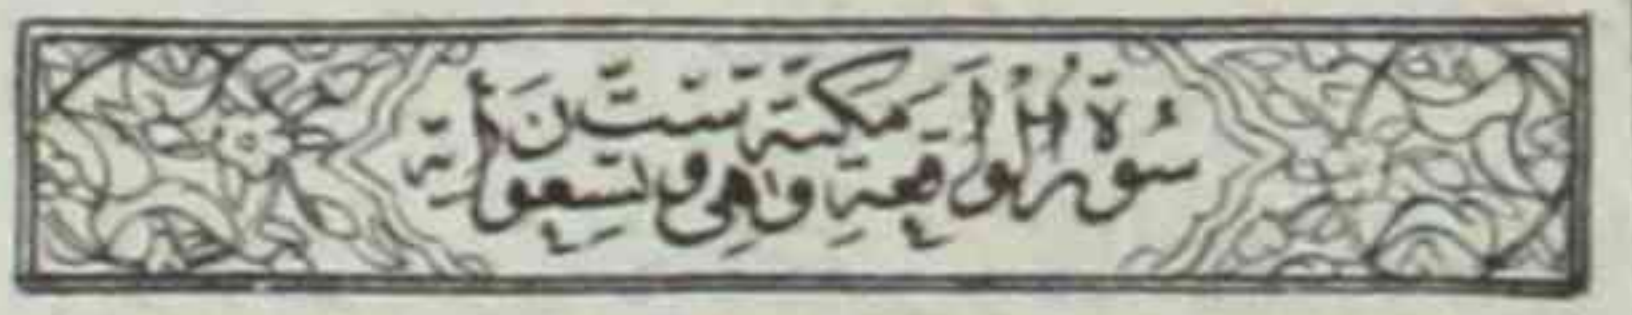 سُورَةُ الْوَاقِعَةِ مَكِّيَّةٌ وَهِيَ سِتٌّ وَتِسْعُونَ آيَة